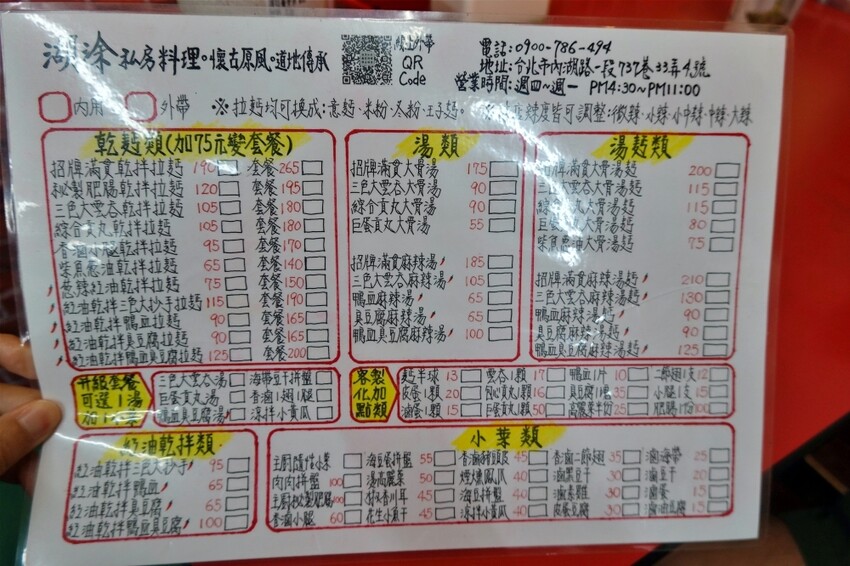 湖涂私房料理。懷古原風。道地傳承
線上外帶
QR
Code
電話:0900-786-494
地址:台北市內湖路一段737巷33弄4號
營業時間:週四~週一 PM14:30~PM11:00
內用 外帶 ※拉麵均可換成:意麵、米粉、冬粉、王子麵。
辣度皆可調整:微辣、小辣、小中辣、中辣、大辣
乾麵類(加75元變套餐)
招牌滿貫乾拌拉麵 190 套餐265
秘製肥腸乾拌拉麵 120 套餐195
三色大雲吞乾拌拉麵 105 套餐180
綜合貢丸乾拌拉麵 105 套餐180
香滷小腿乾拌拉麵 95 套餐170
柴魚蔥油乾拌拉麵 65 套餐140
蔥辣拉油乾拌拉麵 75 套餐150
紅油乾拌三色大抄手拉麵 115 套餐190
紅油乾拌鴨血拉麵 90 套餐165
紅油乾拌臭豆腐拉麵 90 套餐165
紅油乾拌鴨血臭豆腐拉麵 125 套餐200
湯類
招牌滿貫大骨湯 175
三色大雲吞大骨湯 90
綜合貢丸大骨湯 90
巨蛋貢丸大骨湯 55
招牌滿貫麻辣湯 185
三色大雲吞麻辣湯 105
鴨血麻辣湯 65
臭豆腐麻辣湯 65
鴨血臭豆腐麻辣湯 100
湯麵類
招牌滿貫大骨湯麵 200
三色大雲吞大骨湯麵 115
綜合貢丸大骨湯麵 115
巨蛋貢丸大骨湯麵 80
柴魚蔥油大骨湯麵 75
招牌滿貫麻辣湯麵 210
三色大雲吞麻辣湯麵 130
鴨血麻辣湯麵 90
臭豆腐麻辣湯麵 90
鴨血臭豆腐麻辣湯麵 125
升級套餐
可選1湯
加1小菜
三色大雲吞湯 海帶豆干拼盤
巨蛋貢丸湯 香滷小腿1個
鴨血臭豆腐湯 涼拌小黃瓜
客製
化加
點類
麵半球 13 雲吞1顆 17 鴨血1片 10 二節翅1支 12
皮蛋1顆 20 包心貢丸1顆 16 臭豆腐1個 35 小腿1支 15
滷蛋1顆 15 巨蛋貢丸1顆 50 高麗菜半份 25 肥腸1份 100
紅油乾拌類
紅油乾拌三色大抄手 95
紅油乾拌鴨血 65
紅油乾拌臭豆腐 65
紅油乾拌鴨血臭豆腐 100
小菜類
主廚隨性小菜 海豆蛋拼盤 55 香滷豬頭皮 45 香滷二節翅 35 滷海帶 25
肉肉拼盤 100 燙高麗菜 50 40 滷菓豆干 30 滷豆干 20
主廚秘製肥腸 100 川耳 45 海豆拼盤 40 滷素雞 30 滷蛋 15
香滷小腿 60 花生小魚干 45 涼拌小黃瓜 40 皮蛋豆腐 30 滷油豆腐 15